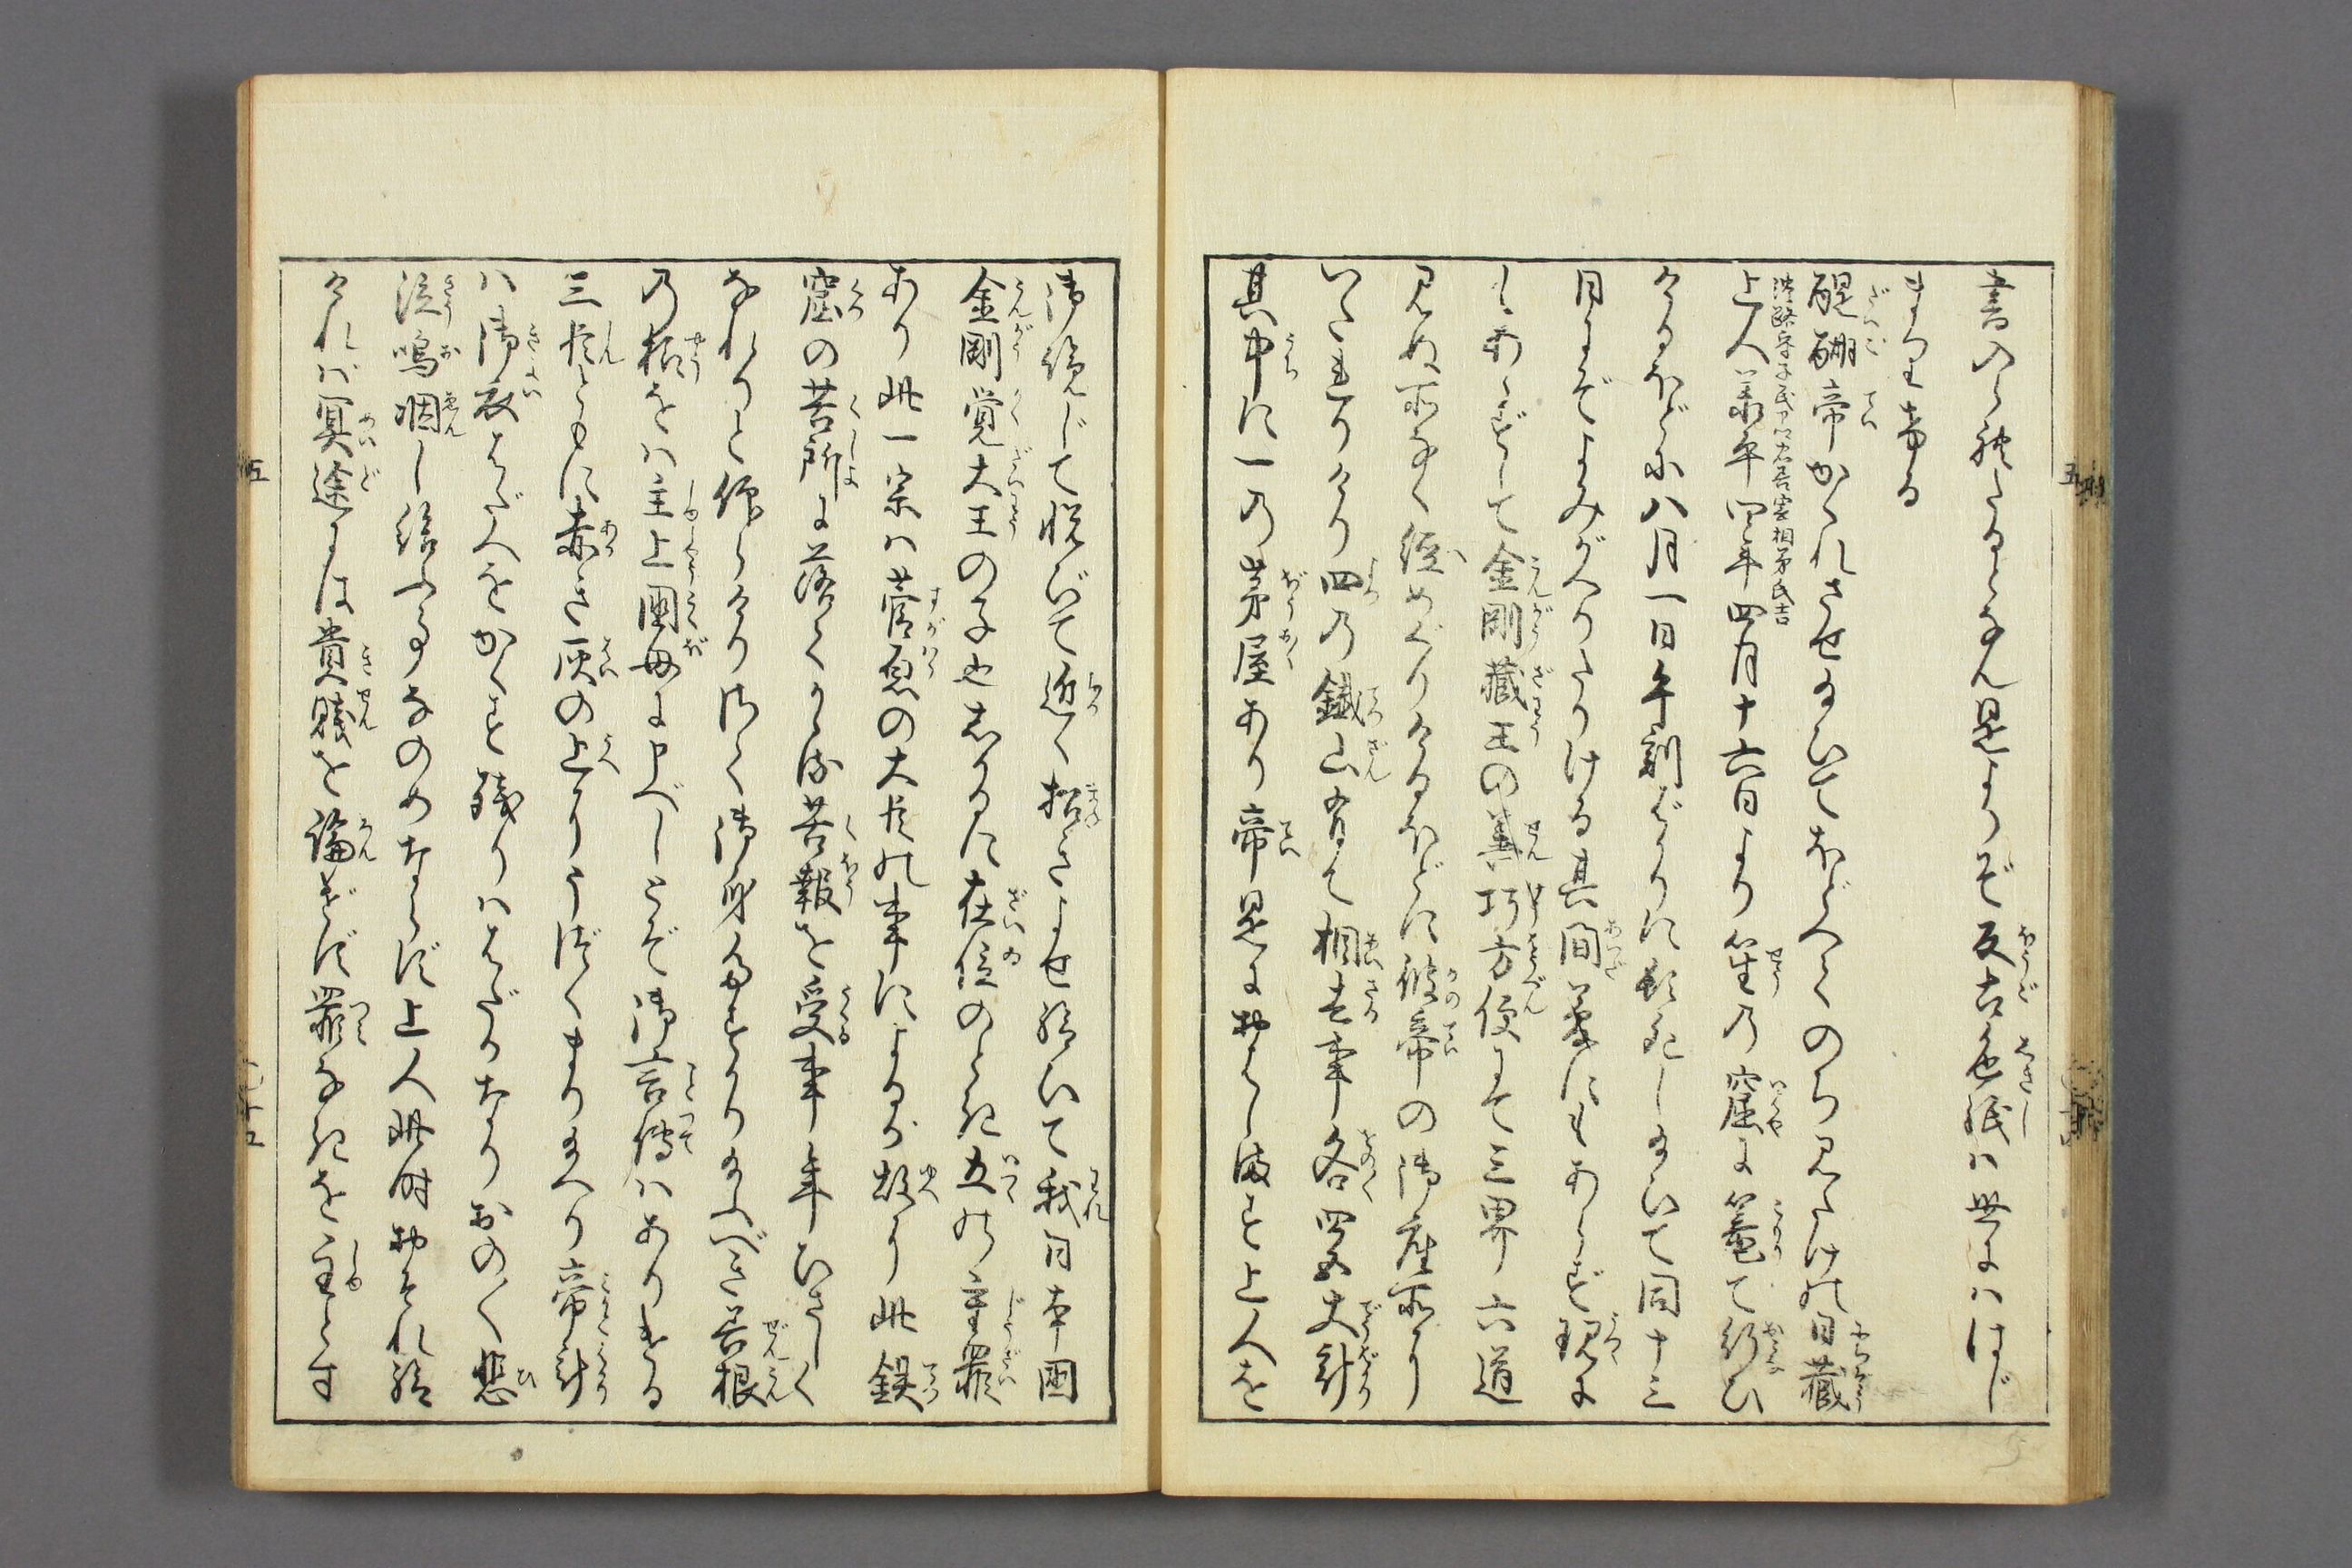 書のし終たるとなん是よりぞ反古色紙ハ世にハはじ
まりき
醍醐帝かくれさせ給ひてほどへてのち見たけの日藏
上人承平四年四月十六日より笙の窟に篭て行ひ
けるほどに八月一日午刻ばかりに頓死し給ひて同十三
日にぞよみがへりたりける其間夢にもあらず現に
もあらずして金剛藏王の善巧方便にて三界六道
見ぬ所なく經めぐりけるほどに彼帝の御座所に
いたれりけり四の鐵山有て相去事各四五丈計
其中に一の茅屋あり帝是におハします上人を
御覧じて悦びて近く招きよせ給ひて我日本國
金剛覚大王の子也しかるに在位のとき五の重罪
あり此一宗ハ菅原の大臣の事によるが故に此鐵
窟の苦所に落てかゝる苦報を受事年ひさしく
なれりと仰られけり しく御身 まふべき善根
の抂をハ主上國母に申べしとぞ御言傳ハありける
三臣ともに赤き灰の上にうづくまり給へり帝計
ハ御衣はだへをかくす残りハはだかなりおの〱悲
泣嗚咽し給ふ なのめならず上人此時おそれ給
ければ冥途には貴賤を論ぜず罪なきを主とす